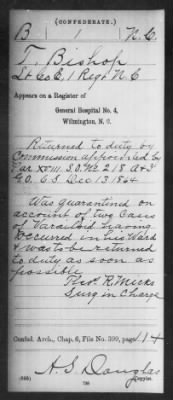 (CONFEDERATE.)
B 1 N.C.
T. Bishop
Lt Co E, 1 Regt N.C.
Appears on a Register of
General Hospital No. 4,
Wilmington, N. C.
Returned to duty by
Commission appointed by
Par XVIII S.O. No 218 A & I
G.O. C.S. Dec 13 1864
Was quarantined on
account of two Cases
of Varioloid having
occurred in his Ward
& was to be returned
to duty as soon as
possible
Thos. R. Micks
Surg in Charge
Confed. Arch., Chap. 6, File No. 399, page 114
A. S. Douglas
Copyist.